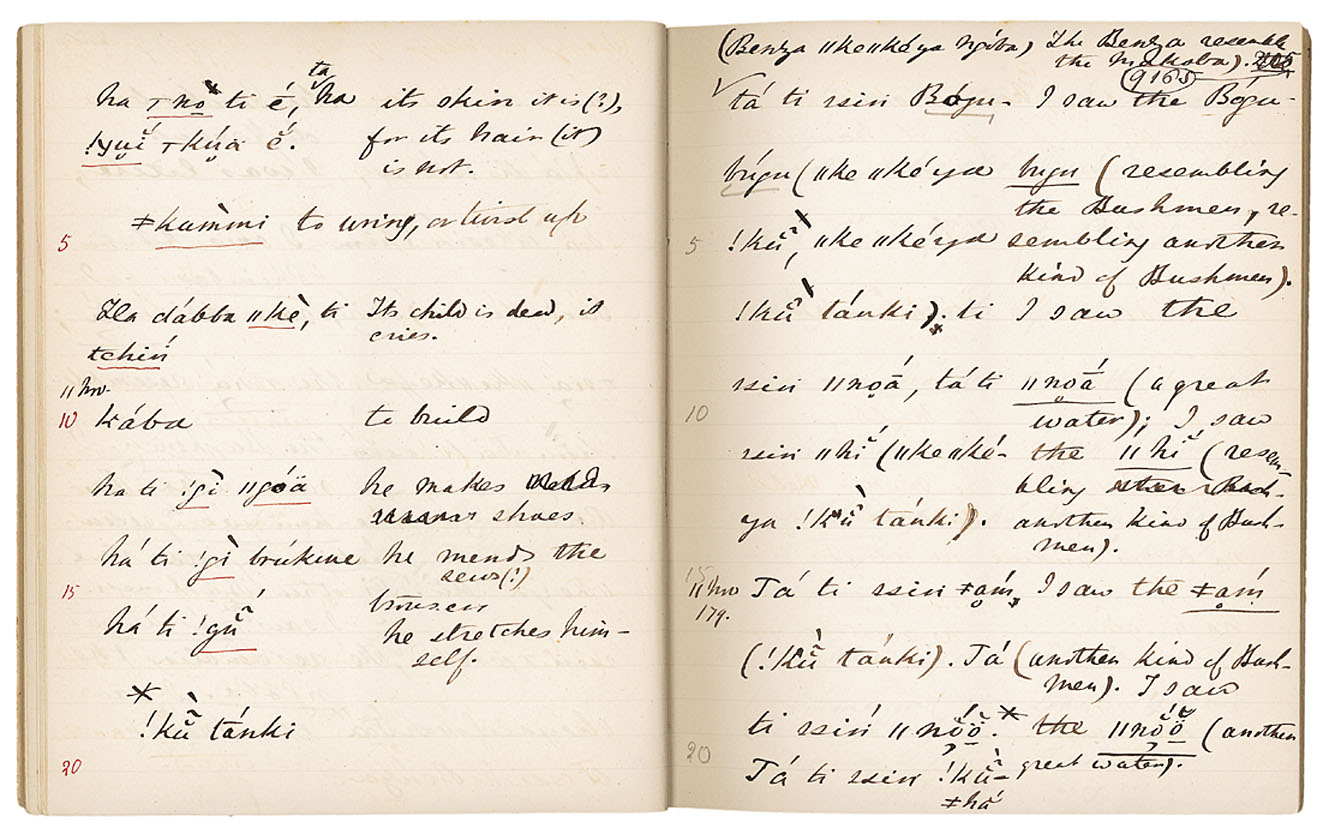 ha ┬no̱ ti é, ta ha its skin it is (?),
!γuï ┬kúä é. for its hair (it)
is not.
ǂkammi to wring, or twist up
5
Ha dábba ǁkè, ti Its child is dead, it
tchiń cries.
ǁhw.
10 kába to build
ha ti !gì ǁgóä he makes
shoes
há ti !gì brúkwe he mends the
sews (?)
15 trousers
há ti !gṹ he stretches him-
self.
*
!kṹ tánki
20
(Benza ǁkeǁkéya ngóba) The Benza resemble
the Makoba).
9165
√ tá ti ssin Bógu- I saw the Bógu-
búgu (ǁke ǁkéya bugu (resembling
the Bushmen, re-
5 !kṹ, ǁke ǁkéya sembling another
kind of Bushmen).
!kṹ tánki). ti I saw the
ssin ǁnọá, tá ti ǁnọá (a great
10 water); I saw
ssin ǁhĭ (ǁkeǁké- the ǁhĭ (resem-
bling Bush-
ya !kṹ tánki). another kind of Bush-
men).
15
ǁhw Tá ti ssin ǂạḿ, I saw the ǂạḿ
179.
(!kṹ tánki). Tá (another kind of Bush-
men). I saw
ti ssiń ǁnŏ́ŏ̈. * the ǁnŏ́ŏ̈ (another
20 great water).
Tá ti ssin !kṹ-
ǂhá